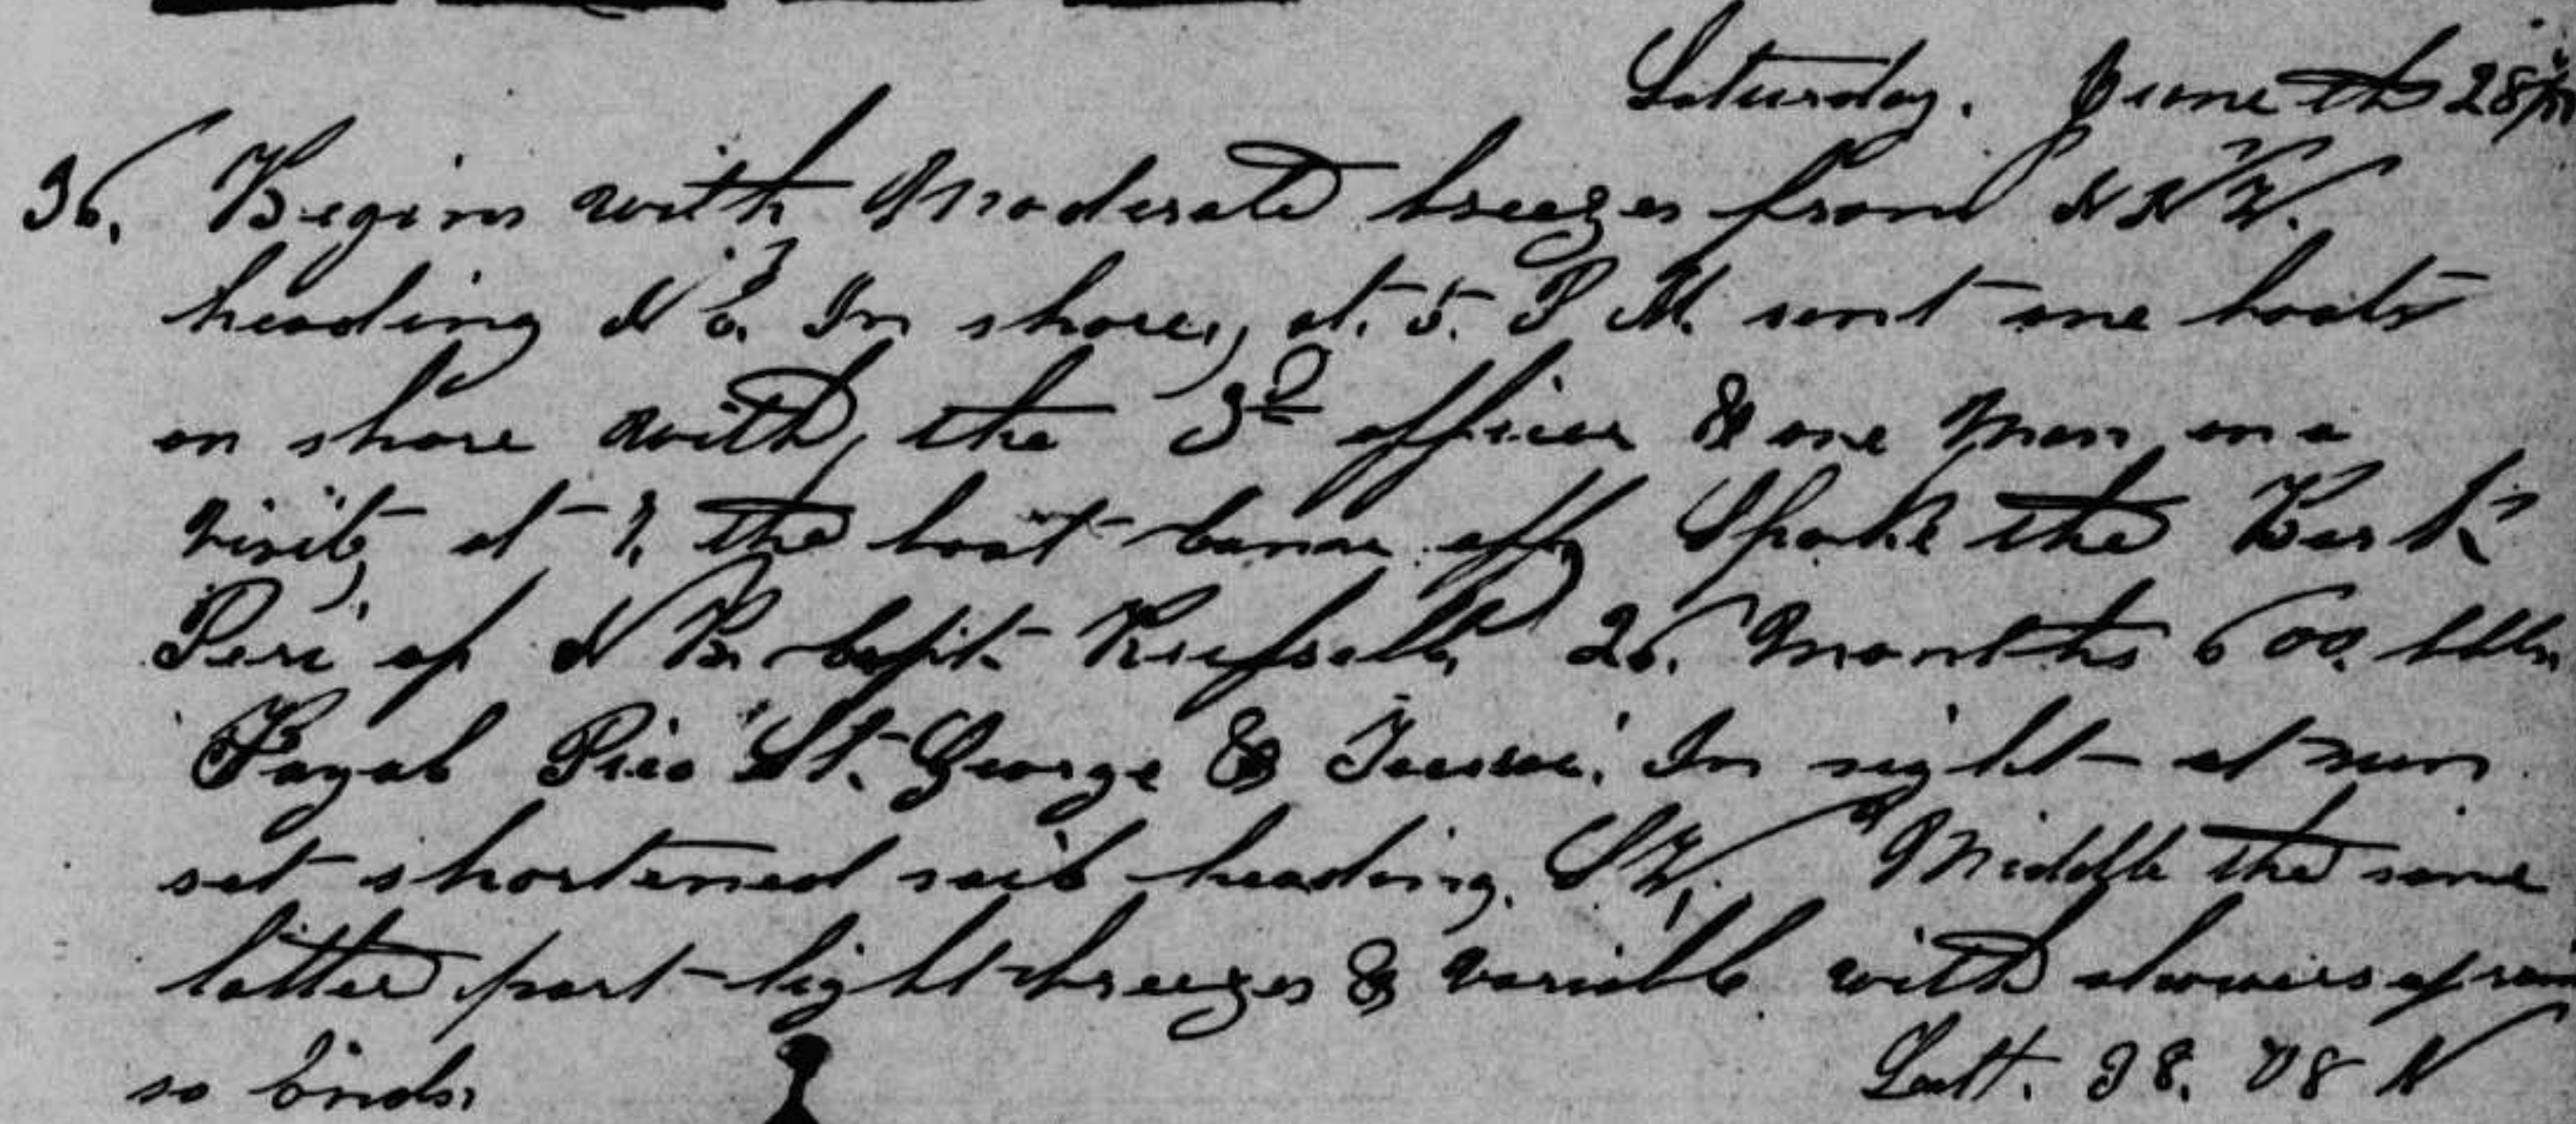 Saturday. June th 28th
36. Begins with Moderate breezes from NNW.
heading N E. In shore, at. 5. P M. sent one boats
on shore with, the 3d officer & one Man, on a
visit, at 7, the boat came off, Spoke the Bark
Peri of N B. Capt. 26. Months 600. bbls
Fayal Pico St. George & In sight at sun
set shortened sail heading. S W. Middle the same
latter part light breezes & variable with showers of rain
so Ends.
Latt. 38. 08 N